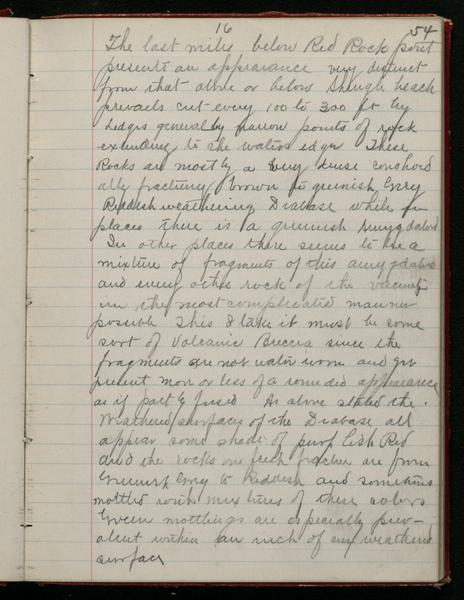 16 54
The last mile below Red Rock point
presents an appearance very distinct
from that above or below Shingle beach
prevails cut every 100 to 300 ft by
ledges generally narrow points of rock
extending to the waters edge These
Rocks are mostly a very dense conchoid
ally fracturing brown to greenish Grey
Reddish weathering Diabase while in
places there is a greenish Amygdaloid
In other places there seems to be a
mixture of fragments of this amygdaloid
and every other rock of the vicinity
in the most complicated manner
possible This I take it must be some
sort of Volcanic Breccia since the
fragments are not water worn and yet
present more or less of a rounded appearance
as if partly fused As above stated the
Weathered surfaces of the Diabase all
appear some shade of purplish Red
and the rocks on fresh fracture are from
Greenish Grey to Reddish and sometimes
mottled with mixtures of these colors
Green mottlings are especially prev-
alent within an inch of any weathered
surface